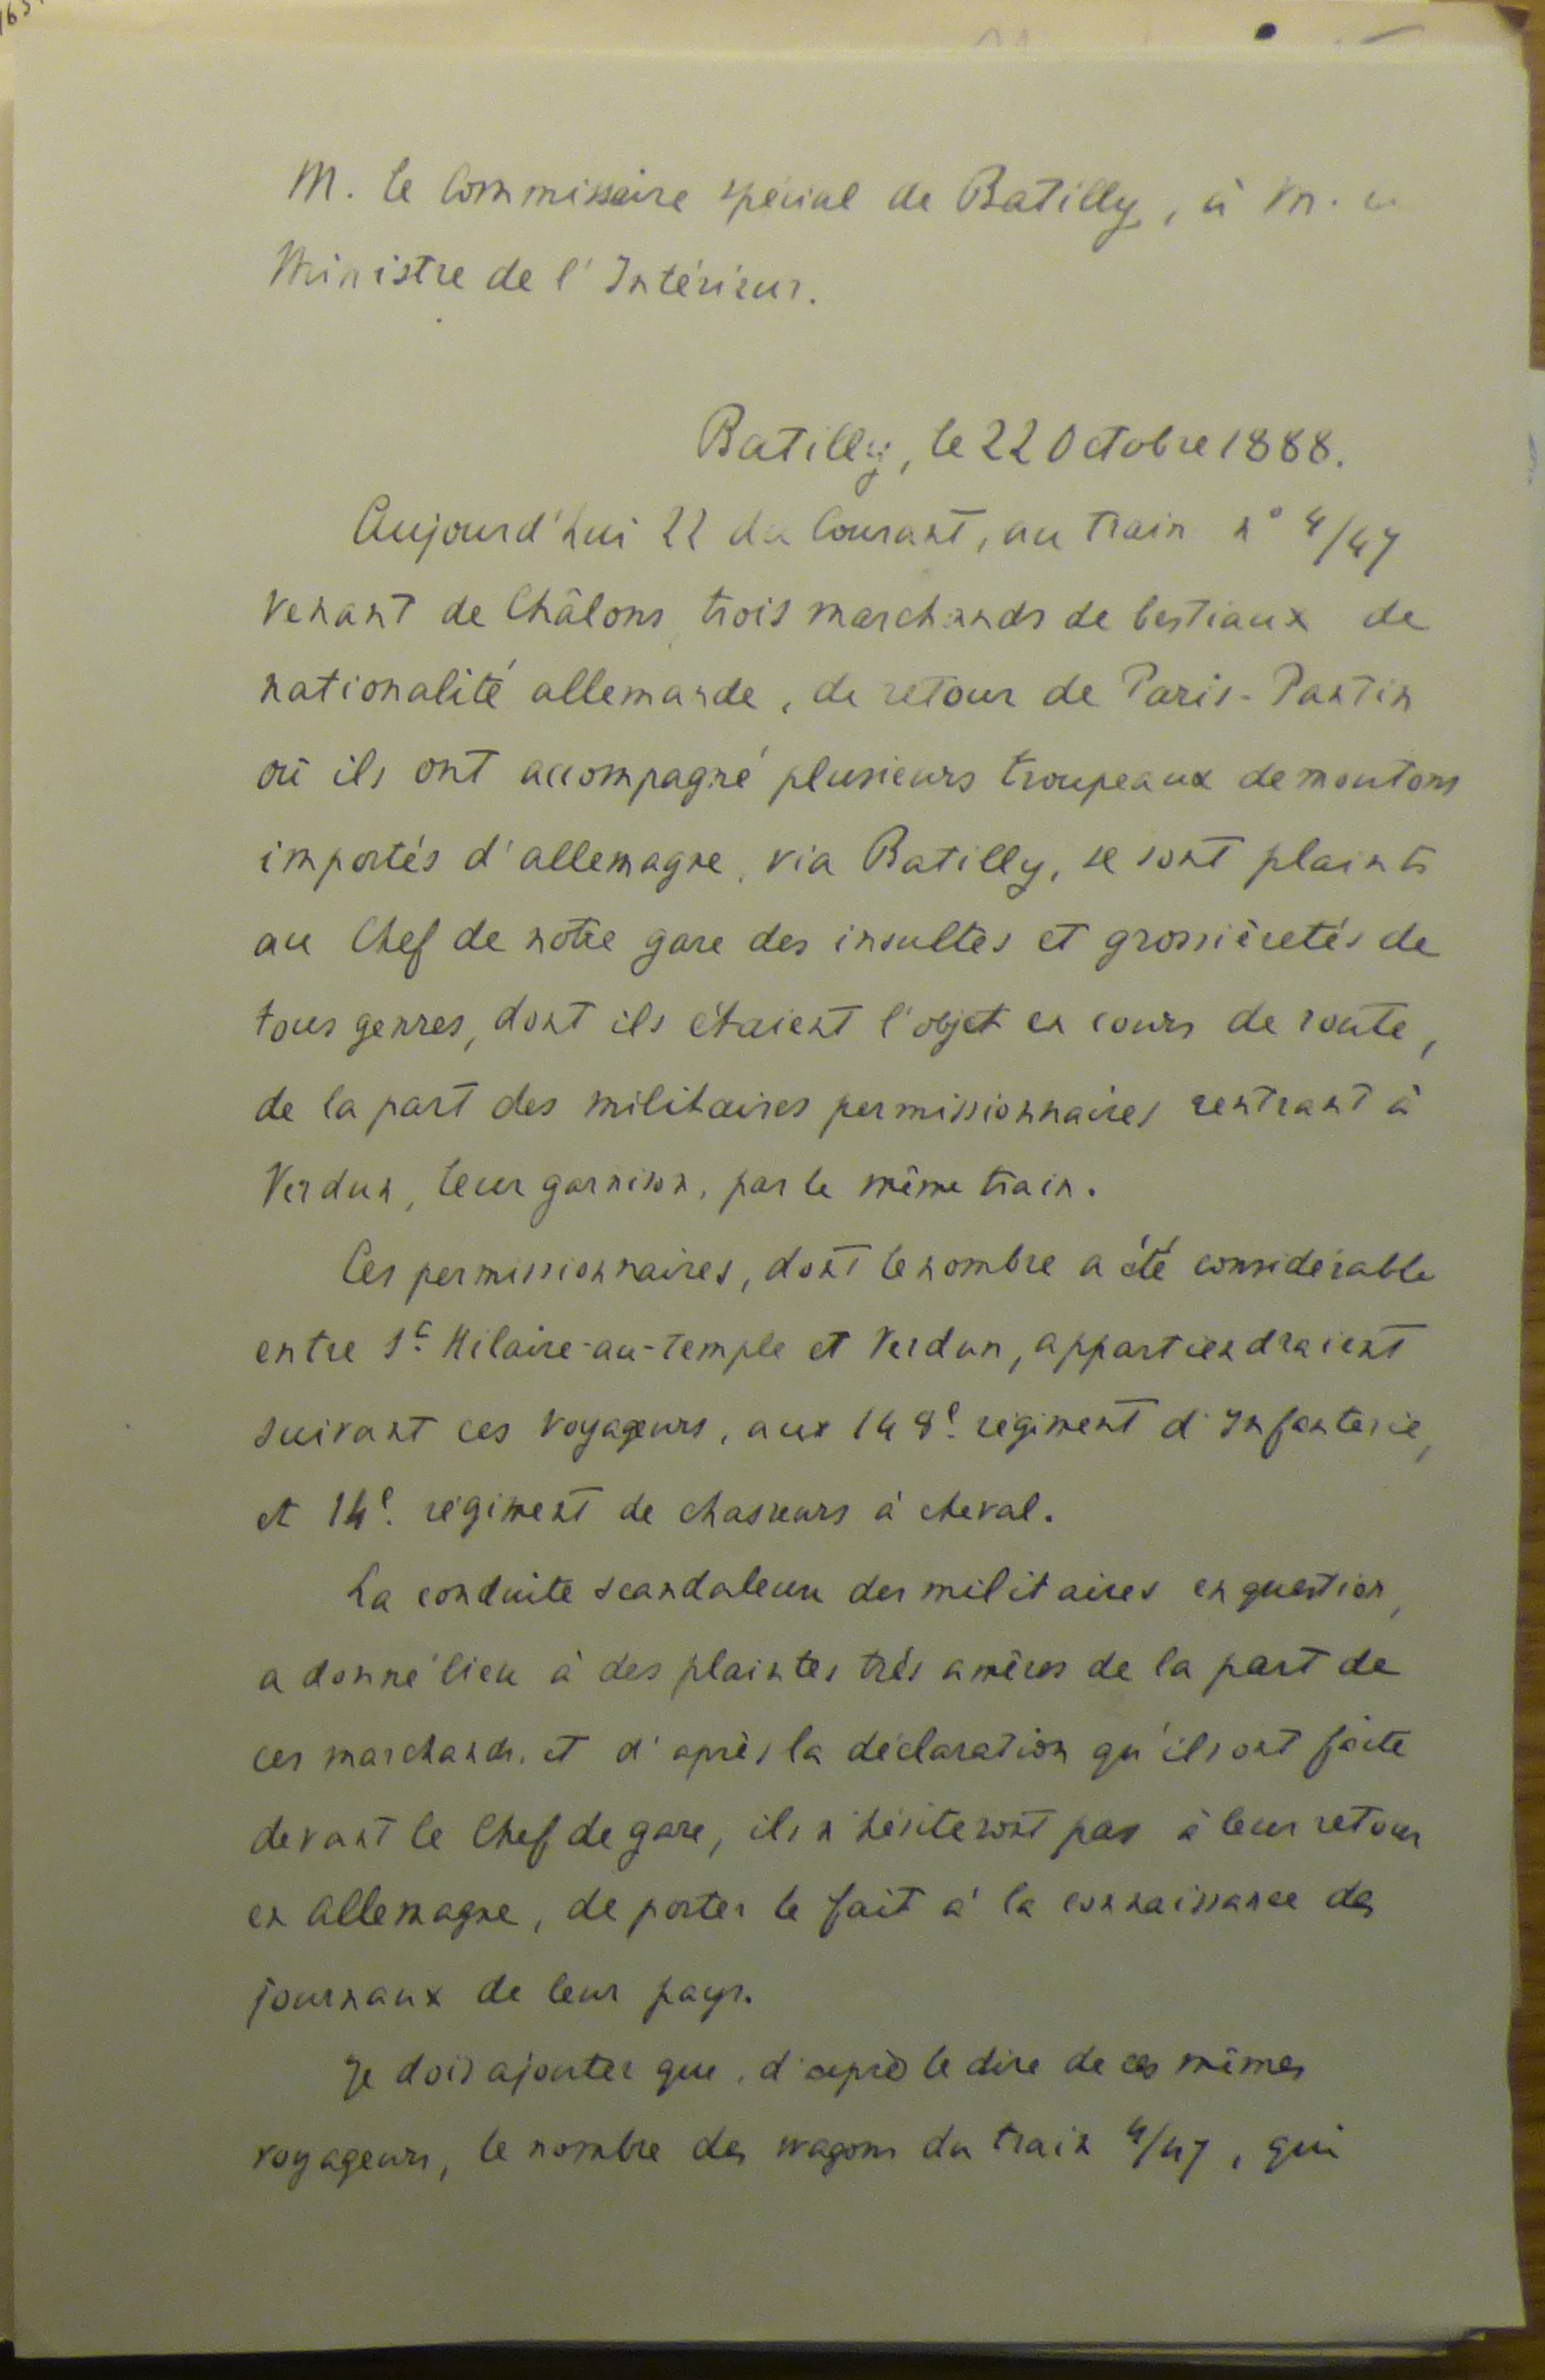 M. le Commissaire spécial de Batilly, à M. le
Ministre de l'Intérieur.
Batilly, le 22 Octobre 1888.
Aujourd'hui 22 du Courant, au train n° 4/47
venant de Châlons, trois marchands de bestiaux de
nationalité allemande, de retour de Paris-Pantin
où ils ont accompagné plusieurs troupeaux de moutons
importés d'allemagne, via Batilly, se sont plaints
au Chef de notre gare des insultes et grossièretés de
tous genres, dont ils étaient l'objet en cours de route,
de la part des militaires permissionnaires rentrant à
Verdun, leur garnison, par le même train.
Ces permissionnaires, dont le nombre a été considérable
entre St Hilaire-au-Temple et Verdun, appartiendraient
suivant ces voyageurs, aux 148e régiment d'Infanterie,
et 14e régiment de chasseurs à cheval.
La conduite scandaleuse des militaires en question,
a donné lieu à des plaintes très amères de la part de
ces marchands, et d'après la déclaration qu'ils ont faite
devant le Chef de gare, ils n'hésiteront pas à leur retour
en Allemagne, de porter le fait à la connaissance des
journaux de leur pays.
Je dois ajouter que, d'après le dire de ces mêmes
voyageurs, le nombre des wagons du train 4/47, qui